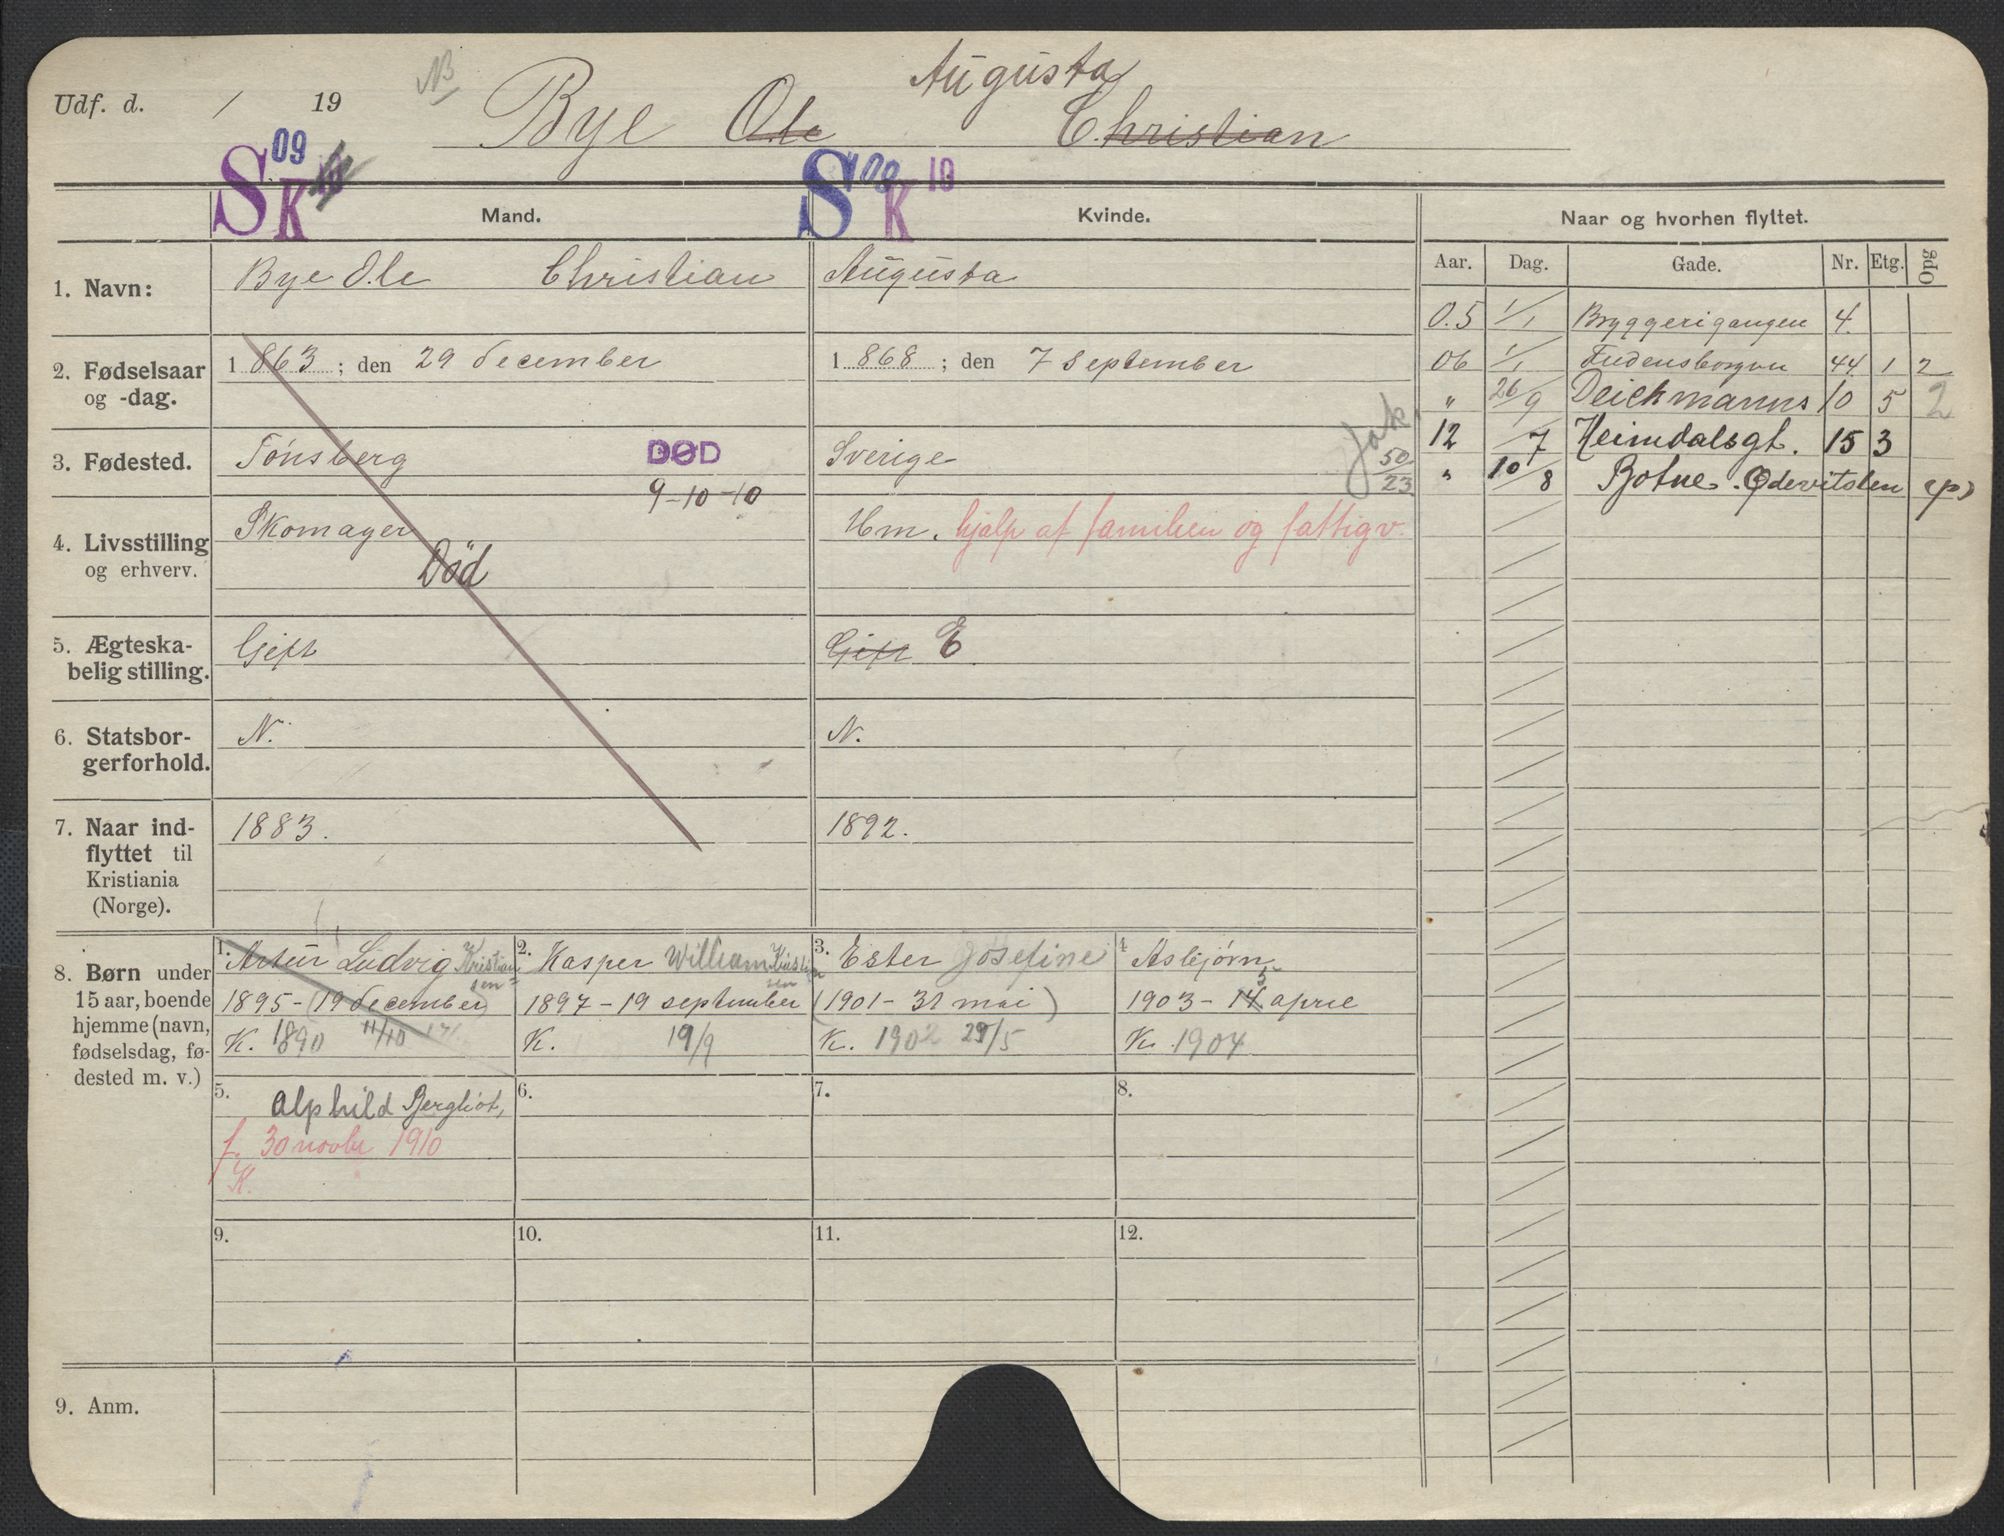 Udf. d. / 19
Bye Ole Christian
Augusta
S 09 K
S 09 K 10
Mand.
Kvinde.
Naar og hvorhen flyttet.
Aar. Dag. Gade. Nr. Etg. Opg
1. Navn:
Bye Ole Christian
Augusta
05 1/1 Bryggerigangen 4
06 1/1 Fredensborgvn 44 1 2
" 26/9 Deichmanns 10 5 2
12 /7 Heimdalsgt. 15 3
" 10/8 Botne. Ødevitslen (p)
2. Fødselsaar
og -dag.
1863; den 29 december
1868; den 7 september
3. Fødested.
Tønsberg
DØD
9-10-10
Sverige
50
23
4. Livsstilling
og erhverv.
Skomager
Død
Hm. hjælp af familien og fattigv.
5. Ægteska-
belig stilling.
Gift
Gift E
6. Statsbor-
gerforhold.
N.
N.
7. Naar ind-
flyttet til
Kristiania
(Norge).
1883.
1892.
8. Børn under
15 aar, boende
hjemme (navn,
fødselsdag, fø-
dested m. v.)
1. Artur Ludvig Kristian
sen
1895-(19 december)
K. 1890 11/10
2. Kasper William Kristian
sen
1897-19 september
K. 19/9
3. Ester Josefine
(1901-31 mai)
K. 1902 29/5
4. Asbjørn
1903-14 5 april
K. 1904
5. Alphild Bergliot,
f. 30 novbr 1910
K.
6.
7.
8.
9.
10.
11.
12.
9. Anm.